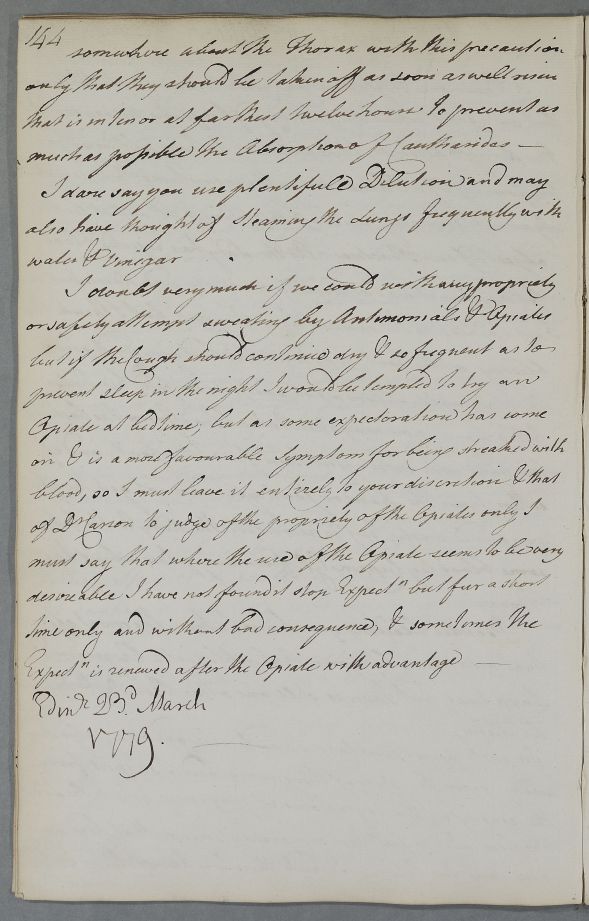 144
somewhere about the Thorax with this precaution
only that they should be taken off as soon as well risen
that is in ten or at farthest twelve hours to prevent as
much as possible the Absorption of Cantharides —
I dare say you use plentifull Dilution and may
also have thought of steaming the Lungs frequently with
water & vinegar
I doubt very much if we could with any propriety
or safety attempt sweating by Antimonials & Opiates
but if the Cough should continue dry & so frequent as to
prevent sleep in the night I would be tempted to try an
Opiate at bedtime, but as some expectoration has come
on & is a more favourable Symptom for being streaked with
blood, so I must leave it entirely to your discretion & that
of Dr Carson to judge of the propriety of the Opiates only I
must say that where the use of the Opiate seems to be very
desireable I have not found it stop Expectn but for a short
time only and without bad consequence, & sometimes the
Expectn is renewed after the Opiate with advantage —
Edinr 23d March
1779.